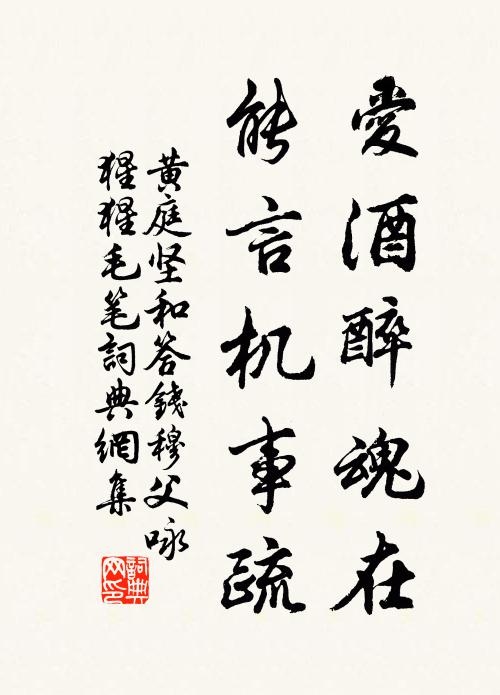 愛酒醉魂在
能言机事疏
黄庭坚和答錢穆父咏
猩猩毛笔詞典網集
詞典网印